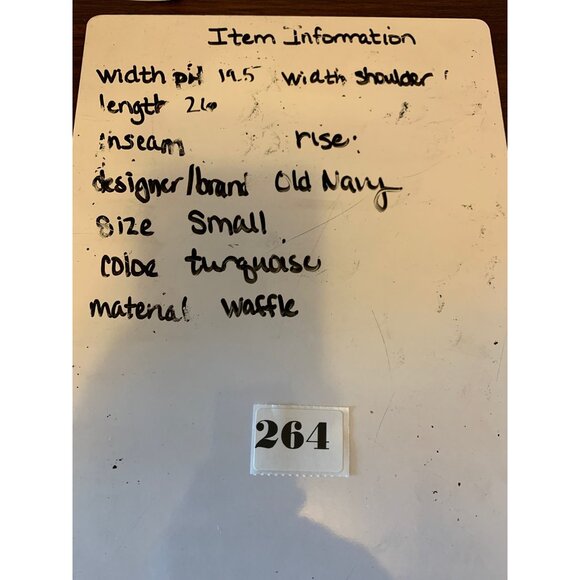 Item Information
width pit 19.5 width shoulder
length 26
inseam rise:
designer/brand Old Navy
size Small
color turquoise
material waffle
264